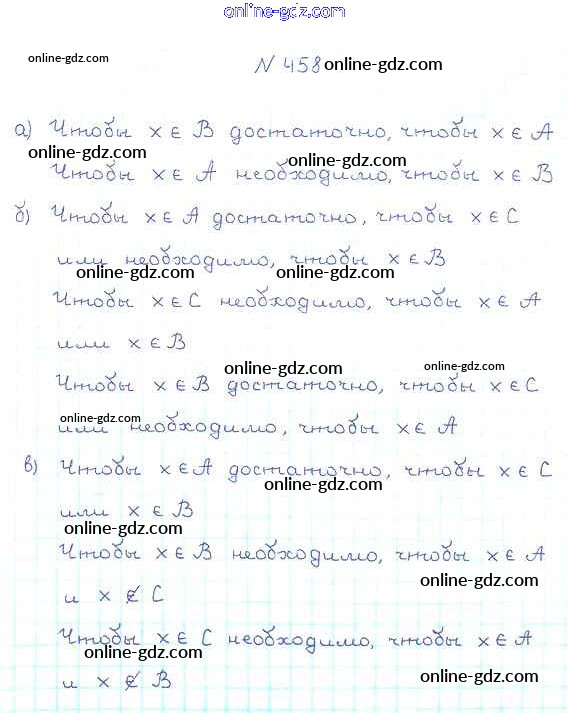 online-gdz.com
online-gdz.com
N 458 online-gdz.com
а) Чтобы x ∈ B достаточно, чтобы x ∈ A
online-gdz.com online-gdz.com
Чтобы x ∈ A необходимо, чтобы x ∈ B
б) Чтобы x ∈ A достаточно, чтобы x ∈ C
или необходимо, чтобы x ∈ B
online-gdz.com online-gdz.com
Чтобы x ∈ C необходимо, чтобы x ∈ A
или x ∈ B
online-gdz.com online-gdz.com
Чтобы x ∈ B достаточно, чтобы x ∈ C
online-gdz.com
или необходимо, чтобы x ∈ A
в) Чтобы x ∈ A достаточно, чтобы x ∈ C
online-gdz.com
или x ∈ B
online-gdz.com
Чтобы x ∈ B необходимо, чтобы x ∈ A
online-gdz.com
и x ∉ C
Чтобы x ∈ C необходимо, чтобы x ∈ A
online-gdz.com
и x ∉ B
online-gdz.com